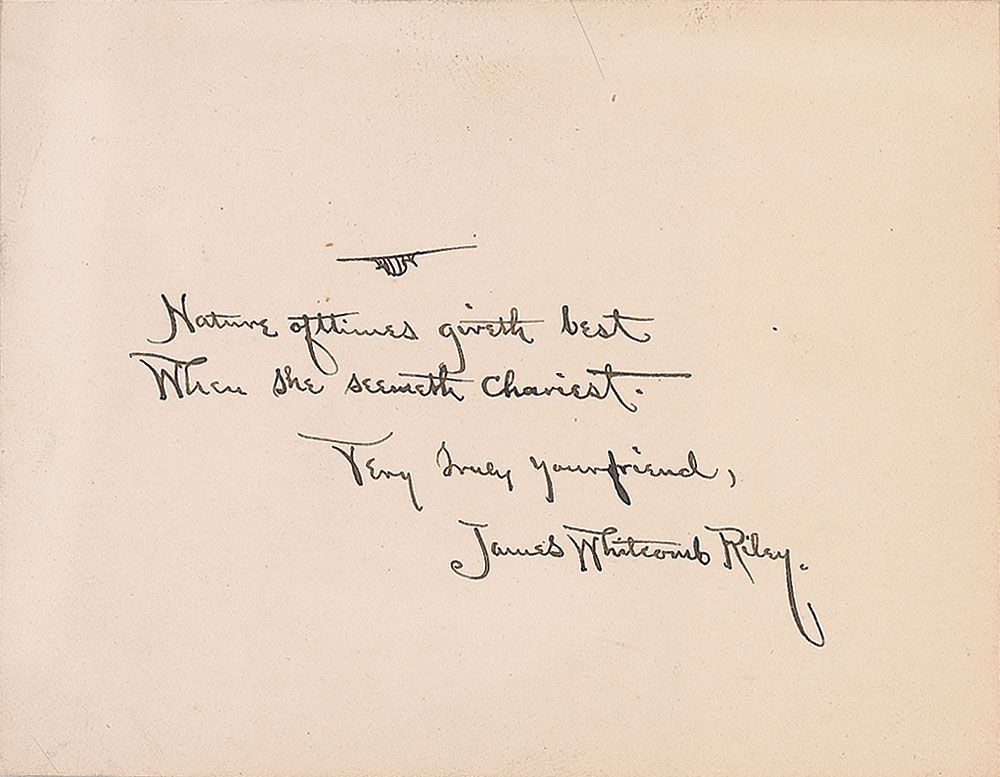 Nature ofttimes giveth best
When she seemeth chariest.
Very truly your friend,
James Whitcomb Riley.